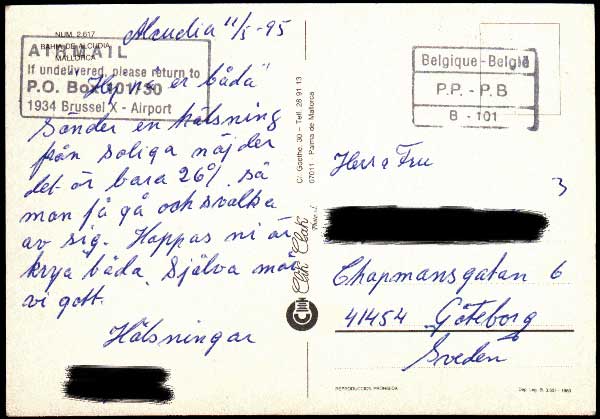 Alcudia 11/5-95
NUM. 2.617
BAHIA DE ALCUDIA
MALLORCA
AIRMAIL
If undelivered, please return to
P.O. Box 101/30
1934 Brussel X - Airport
Hej på er båda
Sänder en hälsning
från soliga
det är bara 26°, så
man få gå och svalka
av sig. Hoppas ni är
krya båda. Själva mår
vi gott.
Hälsningar
C/. Goethe, 30 - Telf. 28 91 13
07011 Palma de Mallorca
Clik Clak
Belgique - België
P.P. - P.B
B - 101
Herr o Fru
3
Chapmansgatan 6
41454 Göteborg
Sveden
REPRODUCCION PROHIBIDA